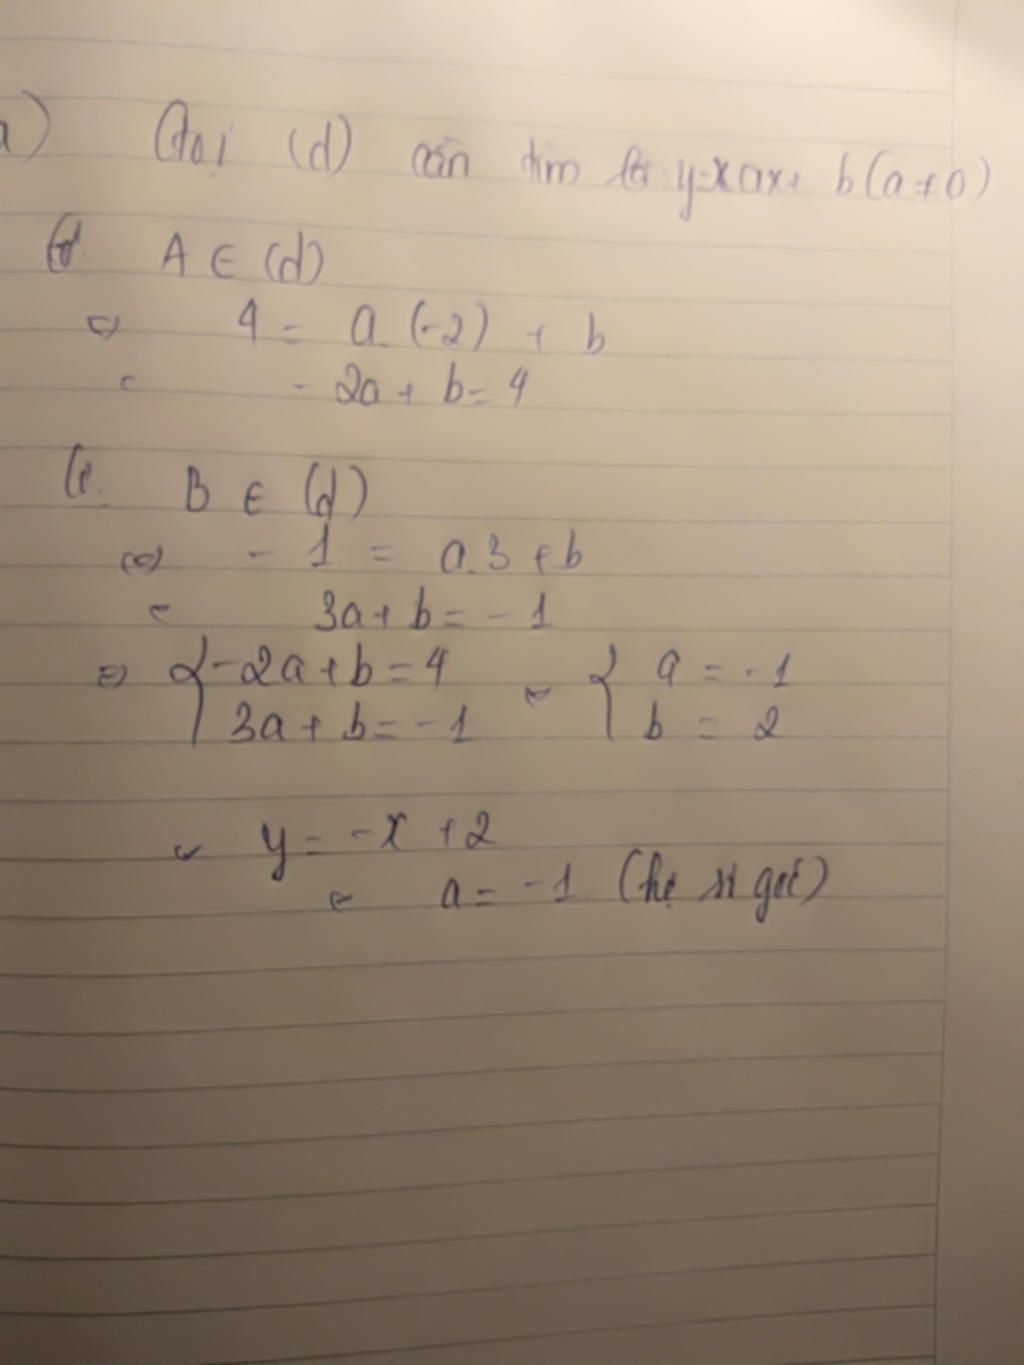 a) Gọi (d) cần tìm là: y = ax + b (a ≠ 0)
A ∈ (d)
⇔ 4 = a.(-2) + b
⇔ -2a + b = 4
B ∈ (d)
⇔ -1 = a.3 + b
⇔ 3a + b = -1
⇒ { -2a + b = 4 ⇔ { a = -1
3a + b = -1 b = 2
y = -x + 2
a = -1 (hệ số góc)